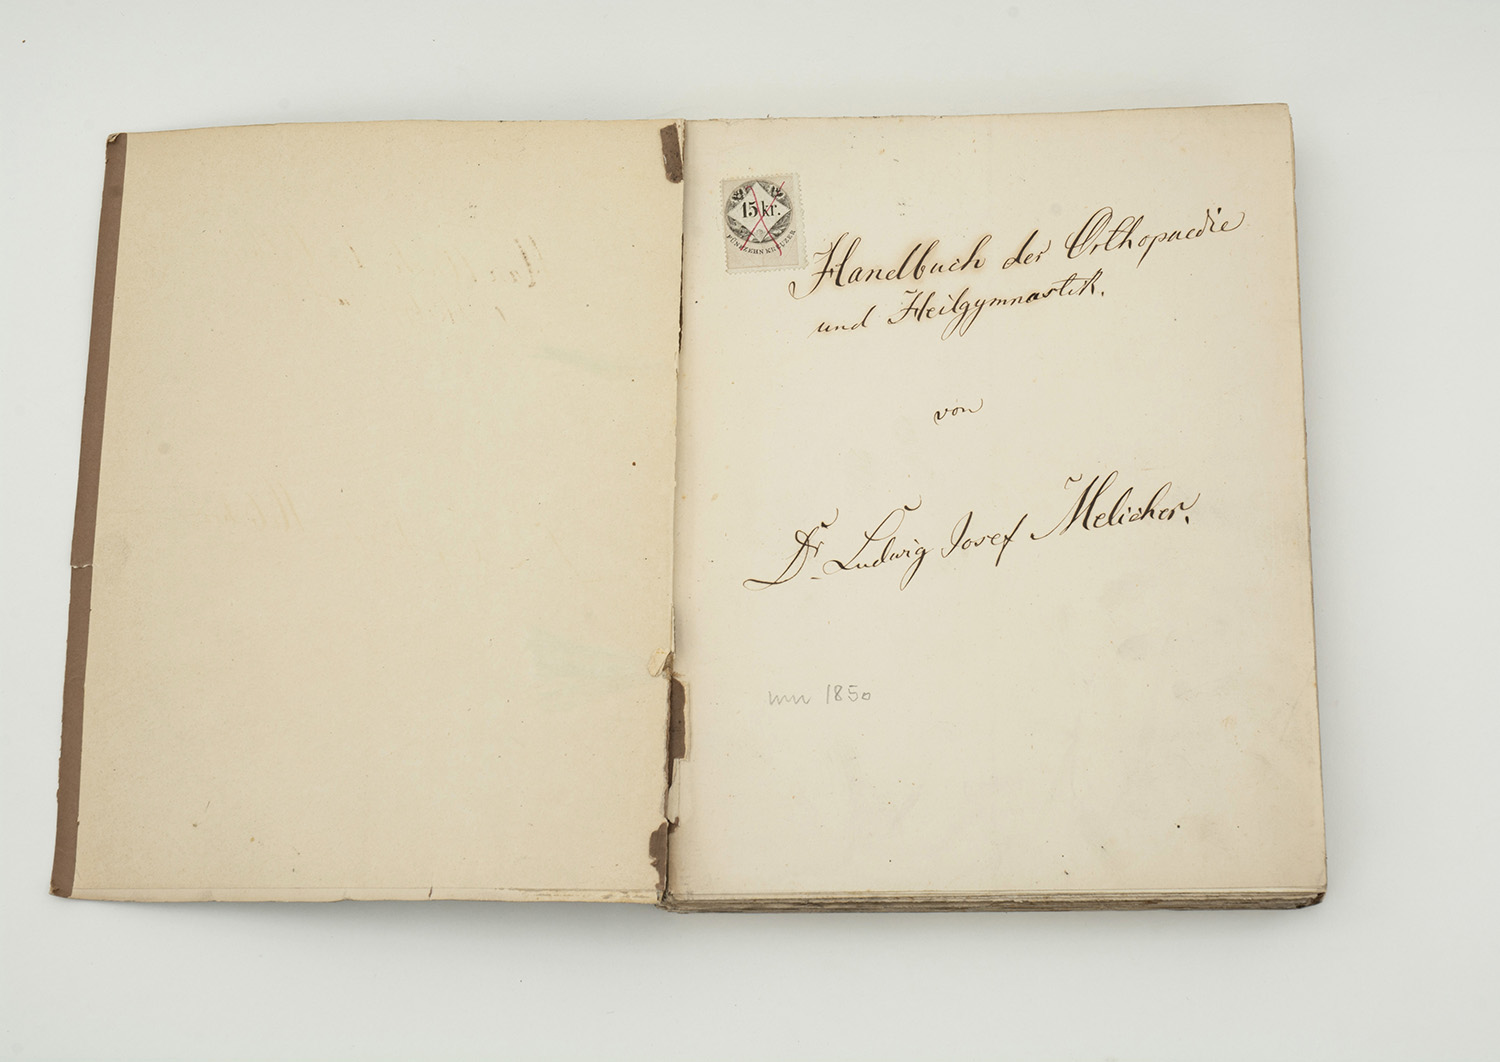 15 kr.
FÜNFZEHN KREUZER
Handbuch der Orthopaedie
und Heilgymnastik.
von
Dr. Ludwig Josef Melicher.
1850